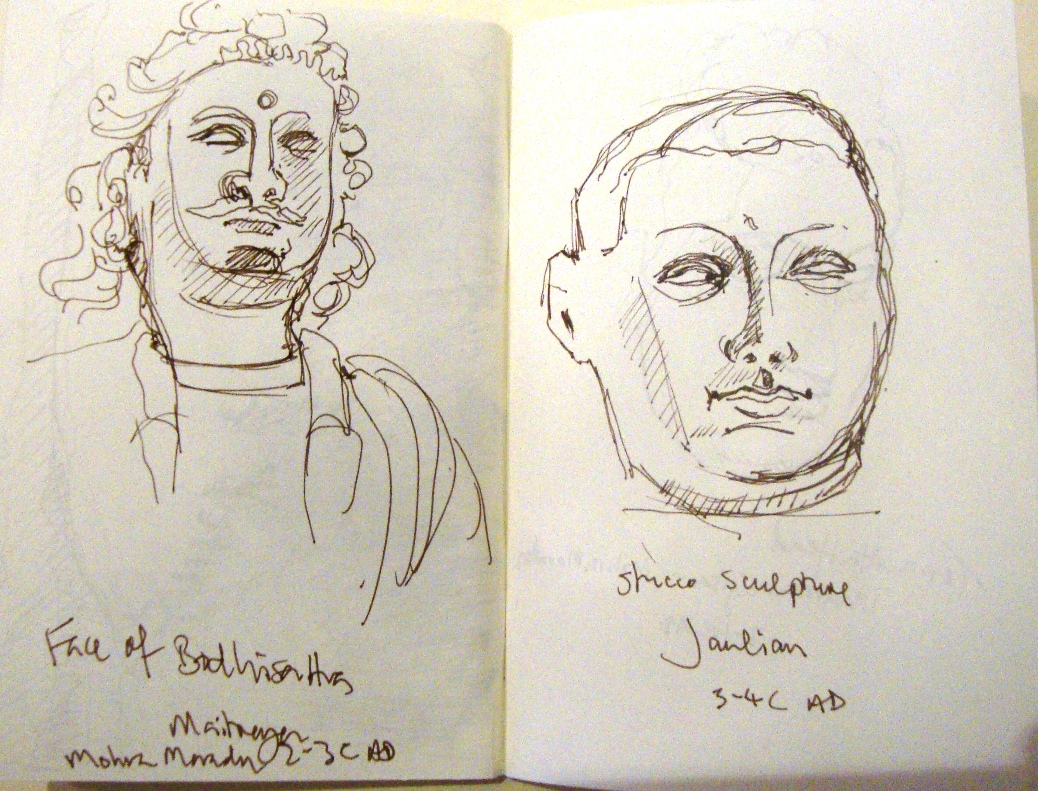 Face of Bodhisattva
Maitreya
Mohra Moradu 2-3C AD
Stucco Sculpture
Jaulian
3-4C AD